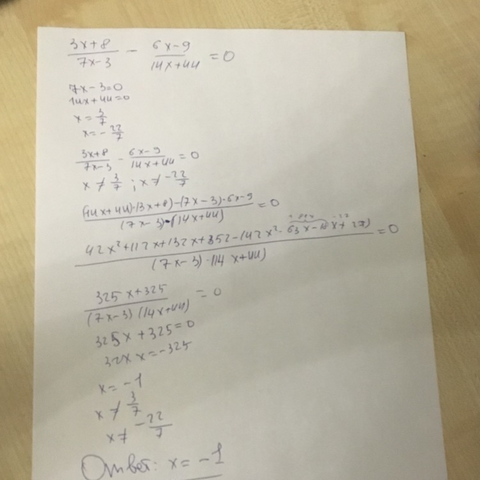 3x+8/7x-3 - 6x-9/14x+44 = 0
7x-3=0
14x+44=0
x = 3/7
x = -22/7
3x+8/7x-3 - 6x-9/14x+44 = 0
x ≠ 3/7 ; x ≠ -22/7
(14x+44)·(3x+8)-(7x-3)·6x-9/(7x-3)·(14x+44) = 0
42x²+112x+132x+352-(42x²-63x-18x+27)/(7x-3)·(14x+44) = 0
325x+325/(7x-3)(14x+44) = 0
325x+325=0
x=-325
x=-1
x ≠ 3/7
x ≠ -22/7
Ответ: x = -1